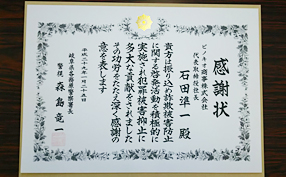 感謝状
ピノキオ商事株式会社
代表取締役社長
石田準一殿
貴方は振り込め詐欺被害防止
に関する啓発活動を積極的に
実施され犯罪被害抑止に
多大な貢献をされました
その功労をたたえ深く感謝の
意を表します
平成二十五年一月二十五日
岐阜県各務原警察署長
警視 森島竜一